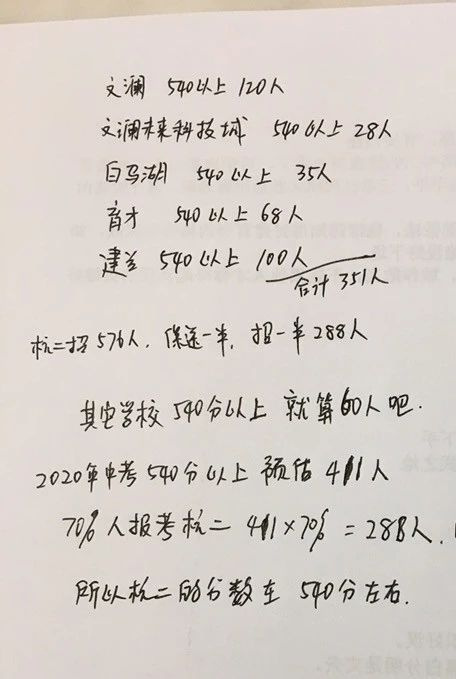 文澜 540以上 120人
文澜未来科技城 540以上 28人
白马湖 540以上 35人
育才 540以上 68人
建兰 540以上 100人
合计 351人
杭二招576人. 保送一半, 招一半288人
其它学校 540分以上 就算60人吧.
2020年中考540分以上 预估 411人
70%人报考杭二 411×70% = 288人.
所以杭二的分数在 540分左右.